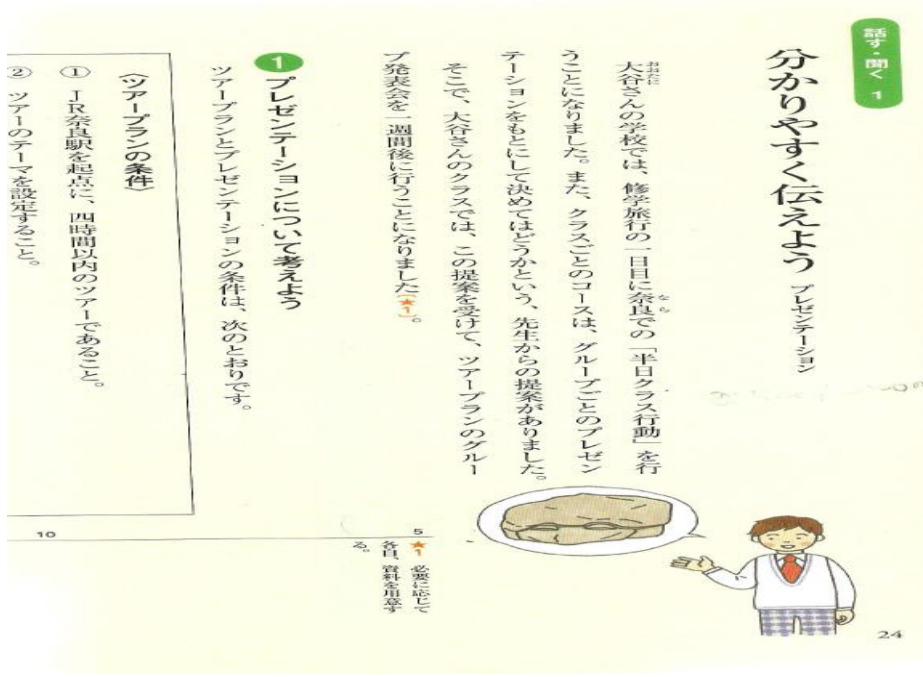 話す・聞く 1
分かりやすく伝えよう プレゼンテーション
大谷さんの学校では、修学旅行の一日目に奈良での「半日クラス行動」を行
うことになりました。また、クラスごとのコースは、グループごとのプレゼン
テーションをもとにして決めてはどうかという、先生からの提案がありました。
そこで、大谷さんのクラスでは、この提案を受けて、ツアープランのグルー
プ発表会を一週間後に行うことになりました(★1)。
1 プレゼンテーションについて考えよう
ツアープランとプレゼンテーションの条件は、次のとおりです。
〈ツアープランの条件〉
① JR奈良駅を起点に、四時間以内のツアーであること。
② ツアーのテーマを設定すること。
★1 必要に応じて
各自、資料を用意す
る。
5
10
24